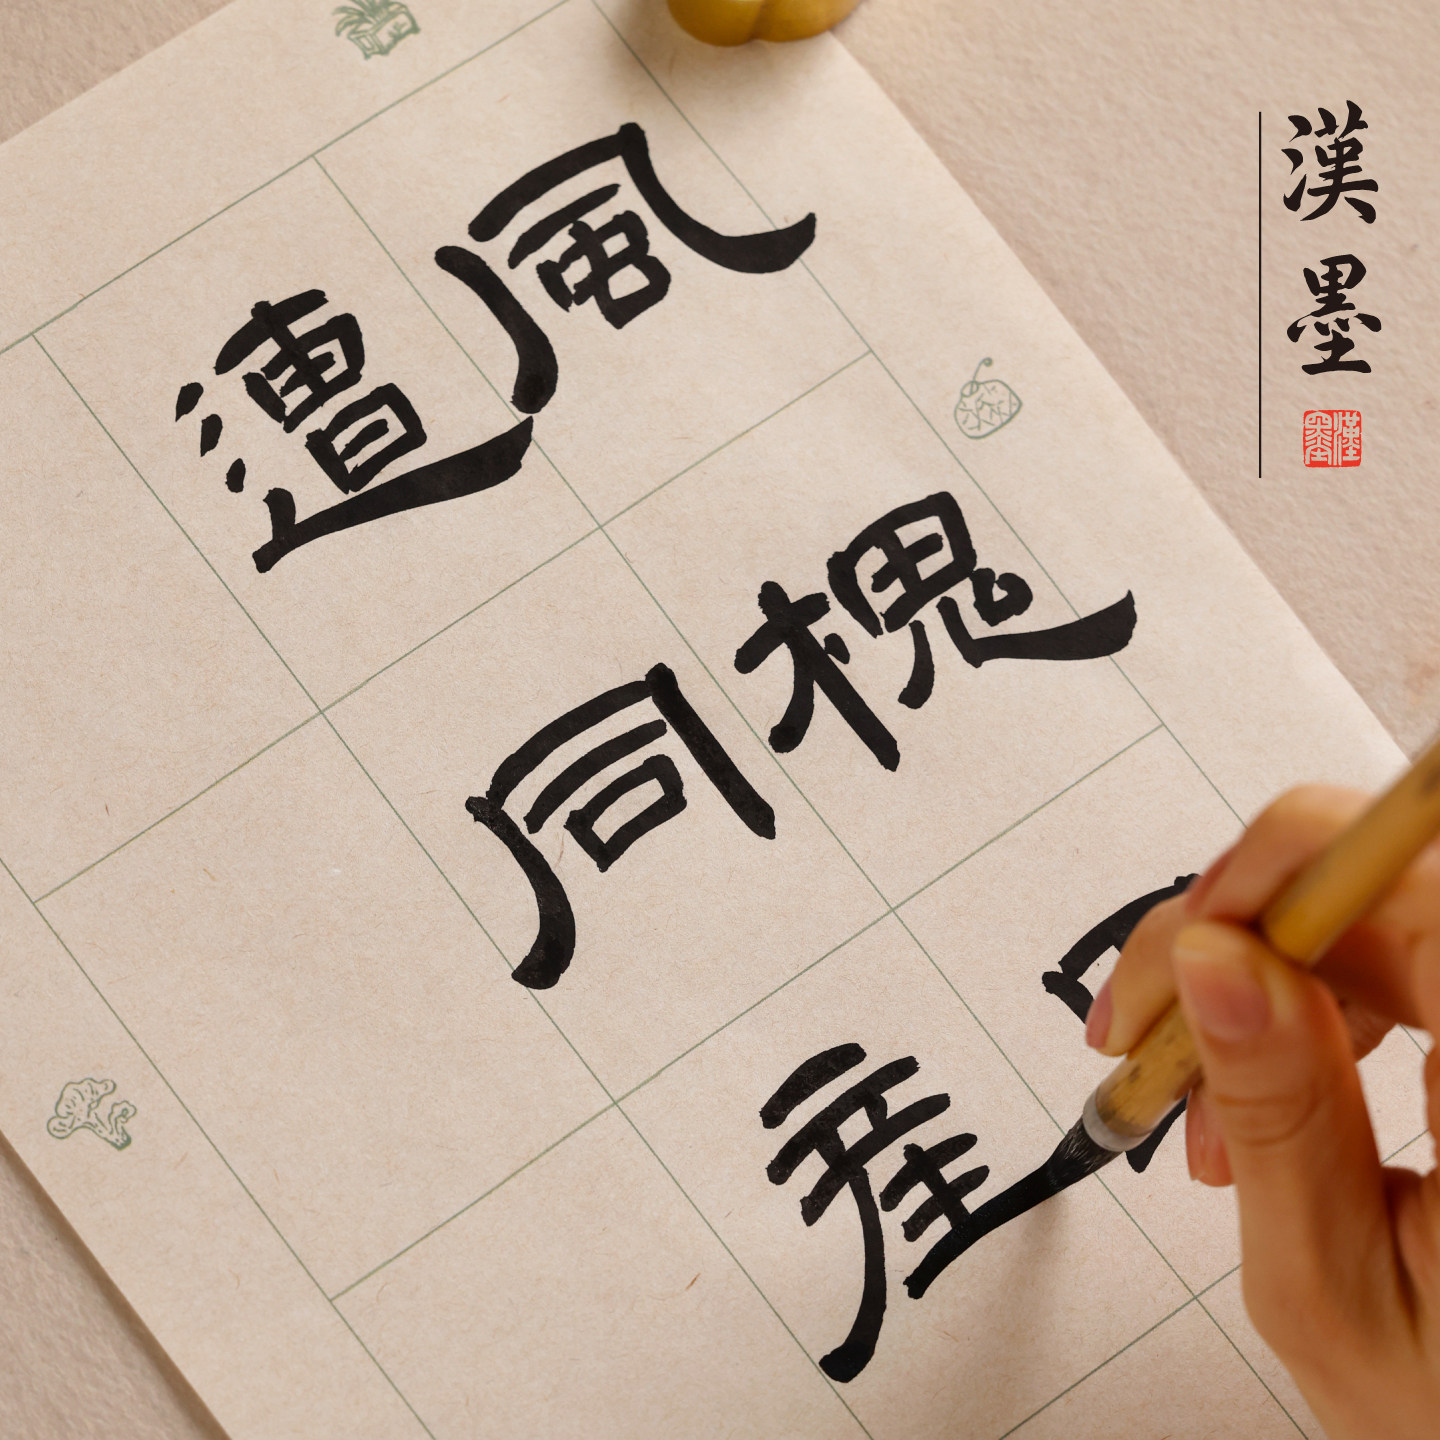 風槐
遭同產
漢墨
漢墨